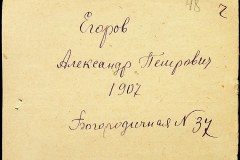 Егоров
Александр Петрович
1907
Богородичная N 37